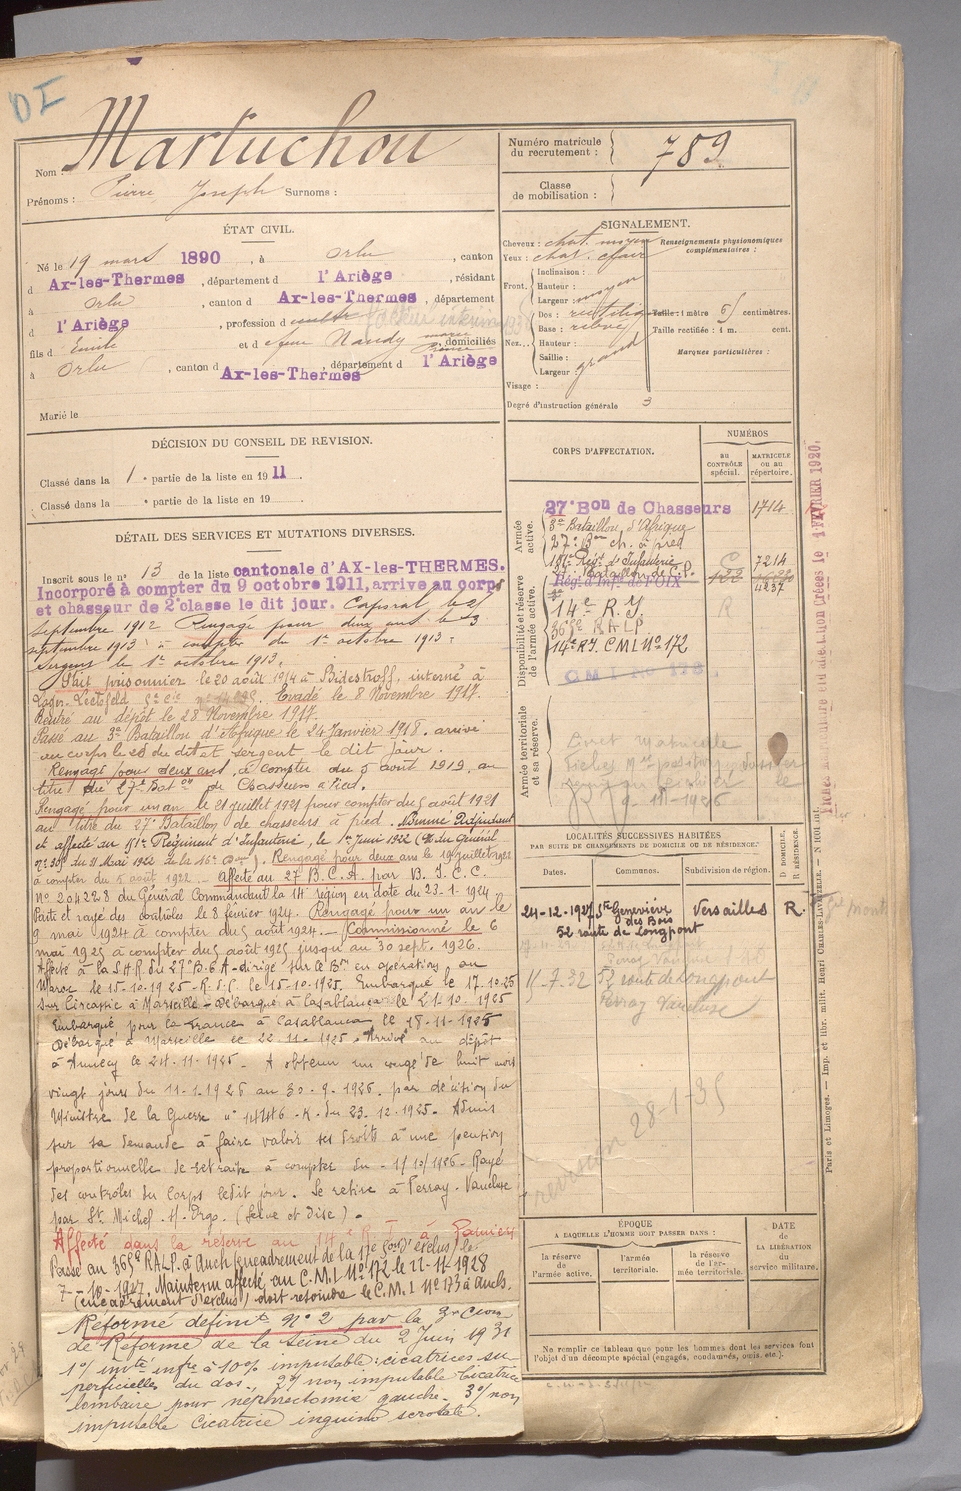 DI
Nom : Martuchou
Prénoms : Pierre Joseph Surnoms :
Numéro matricule du recrutement : 789
Classe de mobilisation :
ÉTAT CIVIL.
Né le 19 mars 1890, à Orlu, canton
d Ax-les-Thermes, département d l'Ariège, résidant
à Orlu, canton d Ax-les-Thermes, département
d l'Ariège, profession d
fils d Emile et d Naudy, domiciliés
à Orlu, canton d Ax-les-Thermes, département d l'Ariège
Marié le
SIGNALEMENT.
Cheveux : chat. moyen
Yeux : chat. clair
Renseignements physionomiques complémentaires :
Front. Inclinaison :
Hauteur :
Largeur : moyen
Nez... Dos : rectiligne
Base : relevé
Hauteur :
Saillie :
Largeur : grand
Visage :
Taille : 1 mètre 61 centimètres.
Taille rectifiée : 1 m. cent.
Marques particulières :
Degré d'instruction générale 3
DÉCISION DU CONSEIL DE REVISION.
Classé dans la 1e partie de la liste en 1911.
Classé dans la e partie de la liste en 19
DÉTAIL DES SERVICES ET MUTATIONS DIVERSES.
Inscrit sous le n° 13 de la liste cantonale d'AX-les-THERMES.
Incorporé à compter du 9 octobre 1911, arrive au corps
et chasseur de 2e classe le dit jour. Caporal le 21
septembre 1912 Rengagé pour deux ans le 3
septembre 1913 à compter du 1er octobre 1913.
Sergent le 1er octobre 1913.
Fait prisonnier le 20 août 1914 à Bidestroff, interné à
Lager-Lechfeld Evadé le 8 Novembre 1917.
Rentré au dépôt le 28 Novembre 1917.
Passé au 3e Bataillon d'Afrique le 24 Janvier 1918. arrivé
au corps le 28 du dit et sergent le dit jour.
Rengagé pour deux ans, à compter du 5 août 1919, au
titre du 27e Baton de Chasseurs à Pied.
Rengagé pour un an le 21 juillet 1921 pour compter du 5 août 1921
au titre du 27e Bataillon de chasseurs à pied. Nommé Adjudant
et affecté au 181e Régiment d'Infanterie, le 1er Juin 1922 (O/ du Général
n° 301 du 31 Mai 1922 de la 16e Don). Rengagé pour deux ans le 19 juillet 1922
à compter du 5 août 1922. Affecté au 27 B.C.A. par D.I.C.C.
N° 20422.8 du Général Commandant la 14e région en date du 23-1-1924
Parti et rayé des contrôles le 8 février 1924. Rengagé pour un an le
9 mai 1924 à compter du 5 août 1924. Commissionné le 6
mai 1925 à compter du 5 août 1925 jusqu'au 30 sept. 1926.
Affecté à la S.H.R. du 27e B.C.A - dirigé sur le Bon en opérations au
Maroc le 15-10-1925 - R.d.C. le 15-10-1925. Embarqué le 17-10-25
sur Circassie à Marseille - Débarqué à Casablanca le 21-10-1925
Embarqué pour la France à Casablanca le 18-11-1925
Débarqué à Marseille le 22-11-1925. Arrivé au dépôt
à Annecy le 24-11-1925. A obtenu un congé de huit mois
vingt jours du 11-1-1926 au 30-9-1926. par décision du
Ministre de la Guerre n° 14446-K. du 23-12-1925. Admis
sur sa demande à faire valoir ses droits à une pension
proportionnelle de retraite à compter du 1/10/1926 - Rayé
des contrôles du Corps ledit jour. Se retire à Perray-Vaucluse
par St Michel s/ Orge. (Seine et Oise).
Affecté dans la réserve au 14e R.I. à Pamiers
Passé au 365e RALP. à Auch (encadrement de la 17e Con d'exclus) le
7-10-1927. Maintenu affecté au C.M.I N° 172 le 22-11-1928
(encadrement d'exclus) doit rejoindre le C.M.I N° 173 à Auch.
Réformé définitif N° 2 par la 3e Cion
de Réforme de la Seine du 2 Juin 1931
1°/ imputable : cicatrices su-
perficielles du dos. 2°/ non imputable Cicatrice
lombaire pour néphrectomie gauche. 3°/ non
imputable Cicatrice inguino scrotale.
CORPS D'AFFECTATION.
NUMÉROS
au CONTRÔLE spécial.
MATRICULE ou au répertoire.
Armée active.
27e Bon de Chasseurs 1714
3e Bataillon d'Afrique
27e Bon ch. à pied
181e Régt d'Infanterie 7214
Disponibilité et réserve de l'armée active.
Régt d'Infie de FOIX 4237
14e R.I.
365e RALP
14e R.I. C.M.I N° 172
C M I No 173.
Armée territoriale et sa réserve.
Livret Matricule
9-III-1926
LOCALITÉS SUCCESSIVES HABITÉES
PAR SUITE DE CHANGEMENTS DE DOMICILE OU DE RÉSIDENCE.
Dates. Communes. Subdivision de région. D. DOMICILE, R. RÉSIDENCE.
24-12-1927 Ste Geneviève des Bois Versailles R.
52 route de Longpont
11-7-32 52 route de Longpont
Perray Vaucluse
revision 28-1-35
ÉPOQUE
A LAQUELLE L'HOMME DOIT PASSER DANS :
la réserve de l'armée active.
l'armée territoriale.
la réserve de l'armée territoriale.
DATE DE LA LIBÉRATION du service militaire.
Ne remplir ce tableau que pour les hommes dont les services font
l'objet d'un décompte spécial (engagés, condamnés, omis, etc.).
Paris et Limoges. — Imp. et libr. milit. Henri CHARLES-LAVAUZELLE.